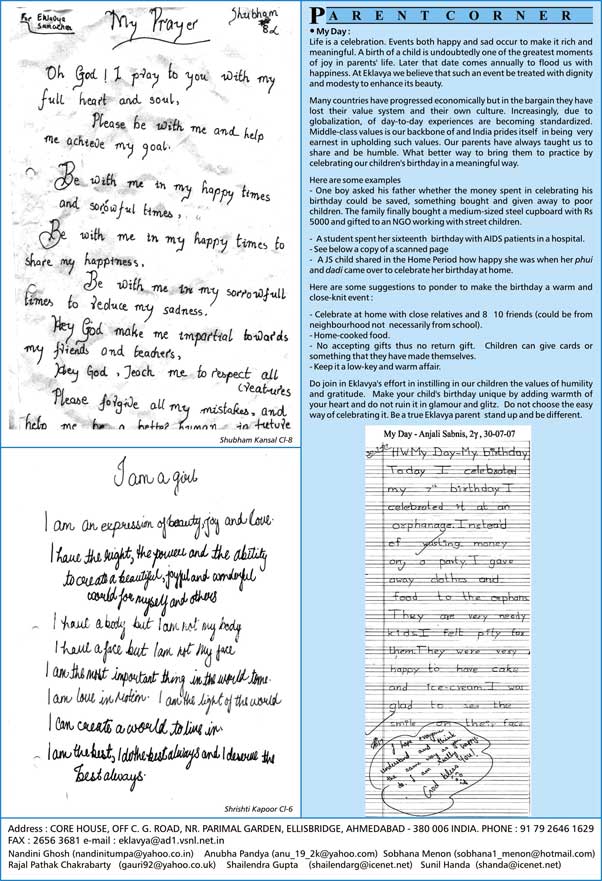 For Eklavya
Samachar
My Prayer
Shubham
8L
Oh God! I pray to you with my
full heart and soul,
Please be with me and help
me achieve my goal.
Be with me in my happy times
and sorowful times,
Be with me in my happy times to
share my happiness.
Be with me in my sorrowfull
times to reduce my sadness.
Hey God make me impartial towards
my friends and teachers,
Hey God, Teach me to respect all
creatures
Please forgive all my mistakes, and
help me be a better human in future
Shubham Kansal Cl-8
I am a girl
I am an expression of beauty, joy and love.
I have the right, the power and the ability
to create a beautiful, joyful and wonderful
world for myself and others
I have a body but I am not my body
I have a face but I am not my face
I am the most important thing in the world
I am love in motion. I am the light of the world
I can create a world to live in.
I am the best, I do the best always and I deserve the
best always.
Shrishti Kapoor Cl-6
PARENT CORNER
• My Day :
Life is a celebration. Events both happy and sad occur to make it rich and
meaningful. A birth of a child is undoubtedly one of the greatest moments
of joy in parents' life. Later that date comes annually to flood us with
happiness. At Eklavya we believe that such an event be treated with dignity
and modesty to enhance its beauty.
Many countries have progressed economically but in the bargain they have
lost their value system and their own culture. Increasingly, due to
globalization, of day-to-day experiences are becoming standardized.
Middle-class values is our backbone of and India prides itself in being very
earnest in upholding such values. Our parents have always taught us to
share and be humble. What better way to bring them to practice by
celebrating our children's birthday in a meaningful way.
Here are some examples
- One boy asked his father whether the money spent in celebrating his
birthday could be saved, something bought and given away to poor
children. The family finally bought a medium-sized steel cupboard with Rs
5000 and gifted to an NGO working with street children.
- A student spent her sixteenth birthday with AIDS patients in a hospital.
- See below a copy of a scanned page
- A JS child shared in the Home Period how happy she was when her phui
and dadi came over to celebrate her birthday at home.
Here are some suggestions to ponder to make the birthday a warm and
close-knit event :
- Celebrate at home with close relatives and 8 10 friends (could be from
neighbourhood not necessarily from school).
- Home-cooked food.
- No accepting gifts thus no return gift. Children can give cards or
something that they have made themselves.
- Keep it a low-key and warm affair.
Do join in Eklavya's effort in instilling in our children the values of humility
and gratitude. Make your child's birthday unique by adding warmth of
your heart and do not ruin it in glamour and glitz. Do not choose the easy
way of celebrating it. Be a true Eklavya parent stand up and be different.
My Day - Anjali Sabnis, 2γ, 30-07-07
HW My Day-My birthday
Today I celebrated
my 7th birthday I
celebrated it at an
orphanage. Instead
of wasting money
on, a party. I gave
away clothes and
food to the orphans
They are very needy
kids I felt pity for
them. They were very
happy to have cake
and ice-cream. I was
glad to see the
smile on their face
I hope everyone
understand and think
the same way as you
do. I am really happy
God bless you!
Address : CORE HOUSE, OFF C. G. ROAD, NR. PARIMAL GARDEN, ELLISBRIDGE, AHMEDABAD - 380 006 INDIA. PHONE : 91 79 2646 1629
FAX : 2656 3681 e-mail : eklavya@ad1.vsnl.net.in
Nandini Ghosh (nandinitumpa@yahoo.co.in) Anubha Pandya (anu_19_2k@yahoo.com) Sobhana Menon (sobhana1_menon@hotmail.com)
Rajal Pathak Chakrabarty (gauri92@yahoo.co.uk) Shailendra Gupta (shailendarg@icenet.net) Sunil Handa (shanda@icenet.net)